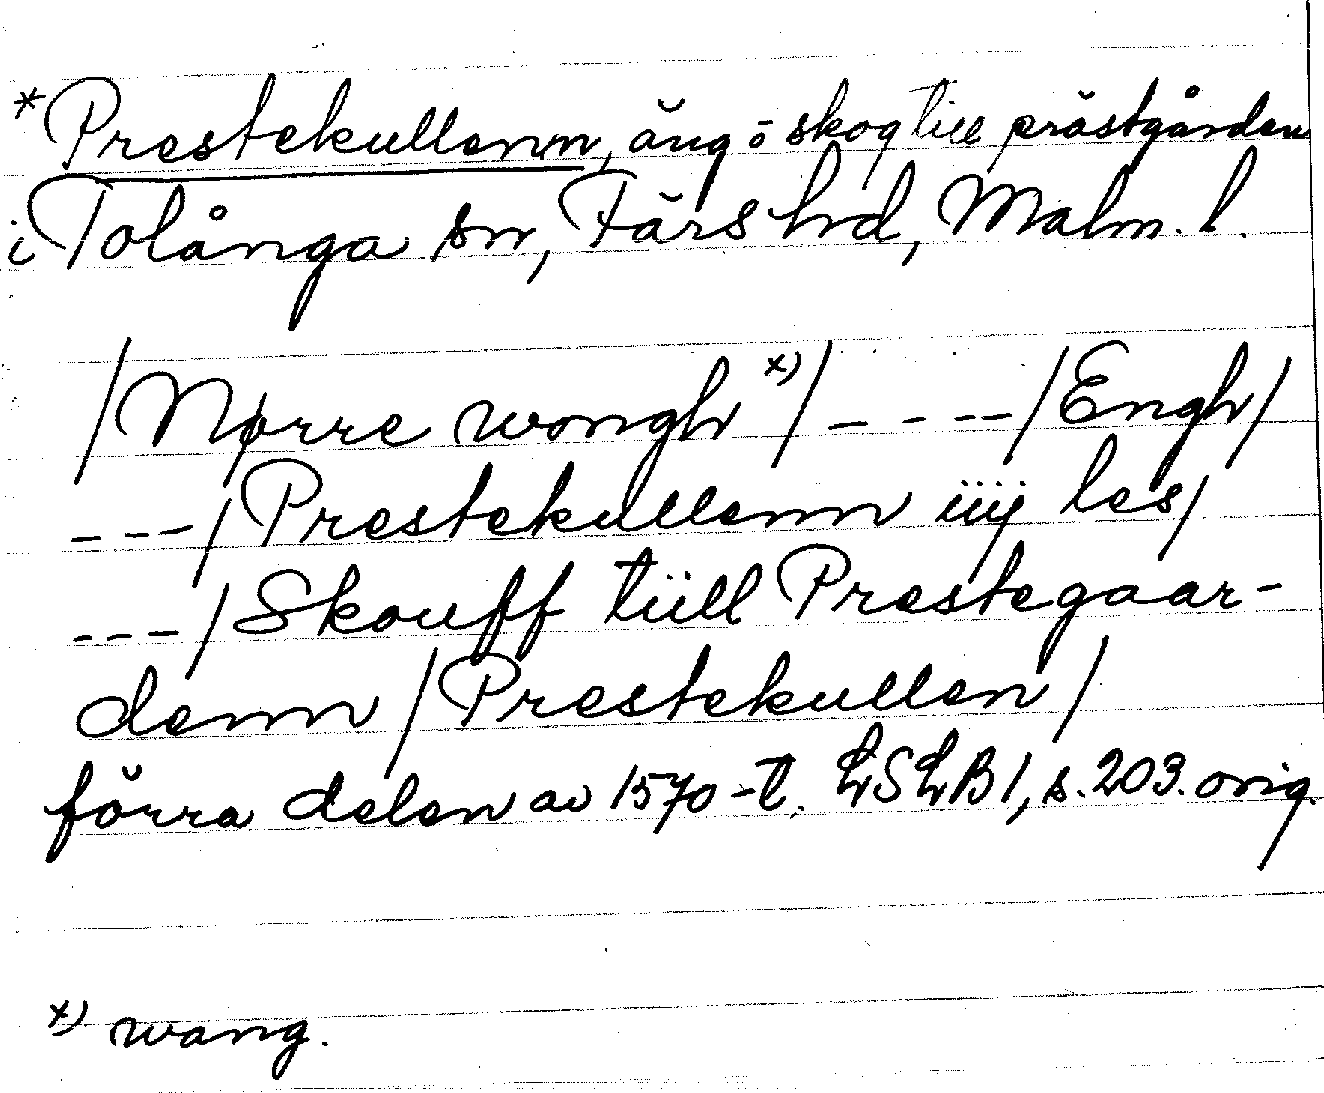 *Prestekullenn, äng o skog till prästgården
i Tolånga sn, Färs hd, Malm. l.
/Nørre wongh x)/ _ _ _ _ /Engh/
_ _ _ /Prestekullenn iiij les/
_ _ _ /Skouff tiill Prestegaar-
denn /Prestekullen/
förra delen av 1570-t. LSLB I, s. 203. orig.
x) wang.